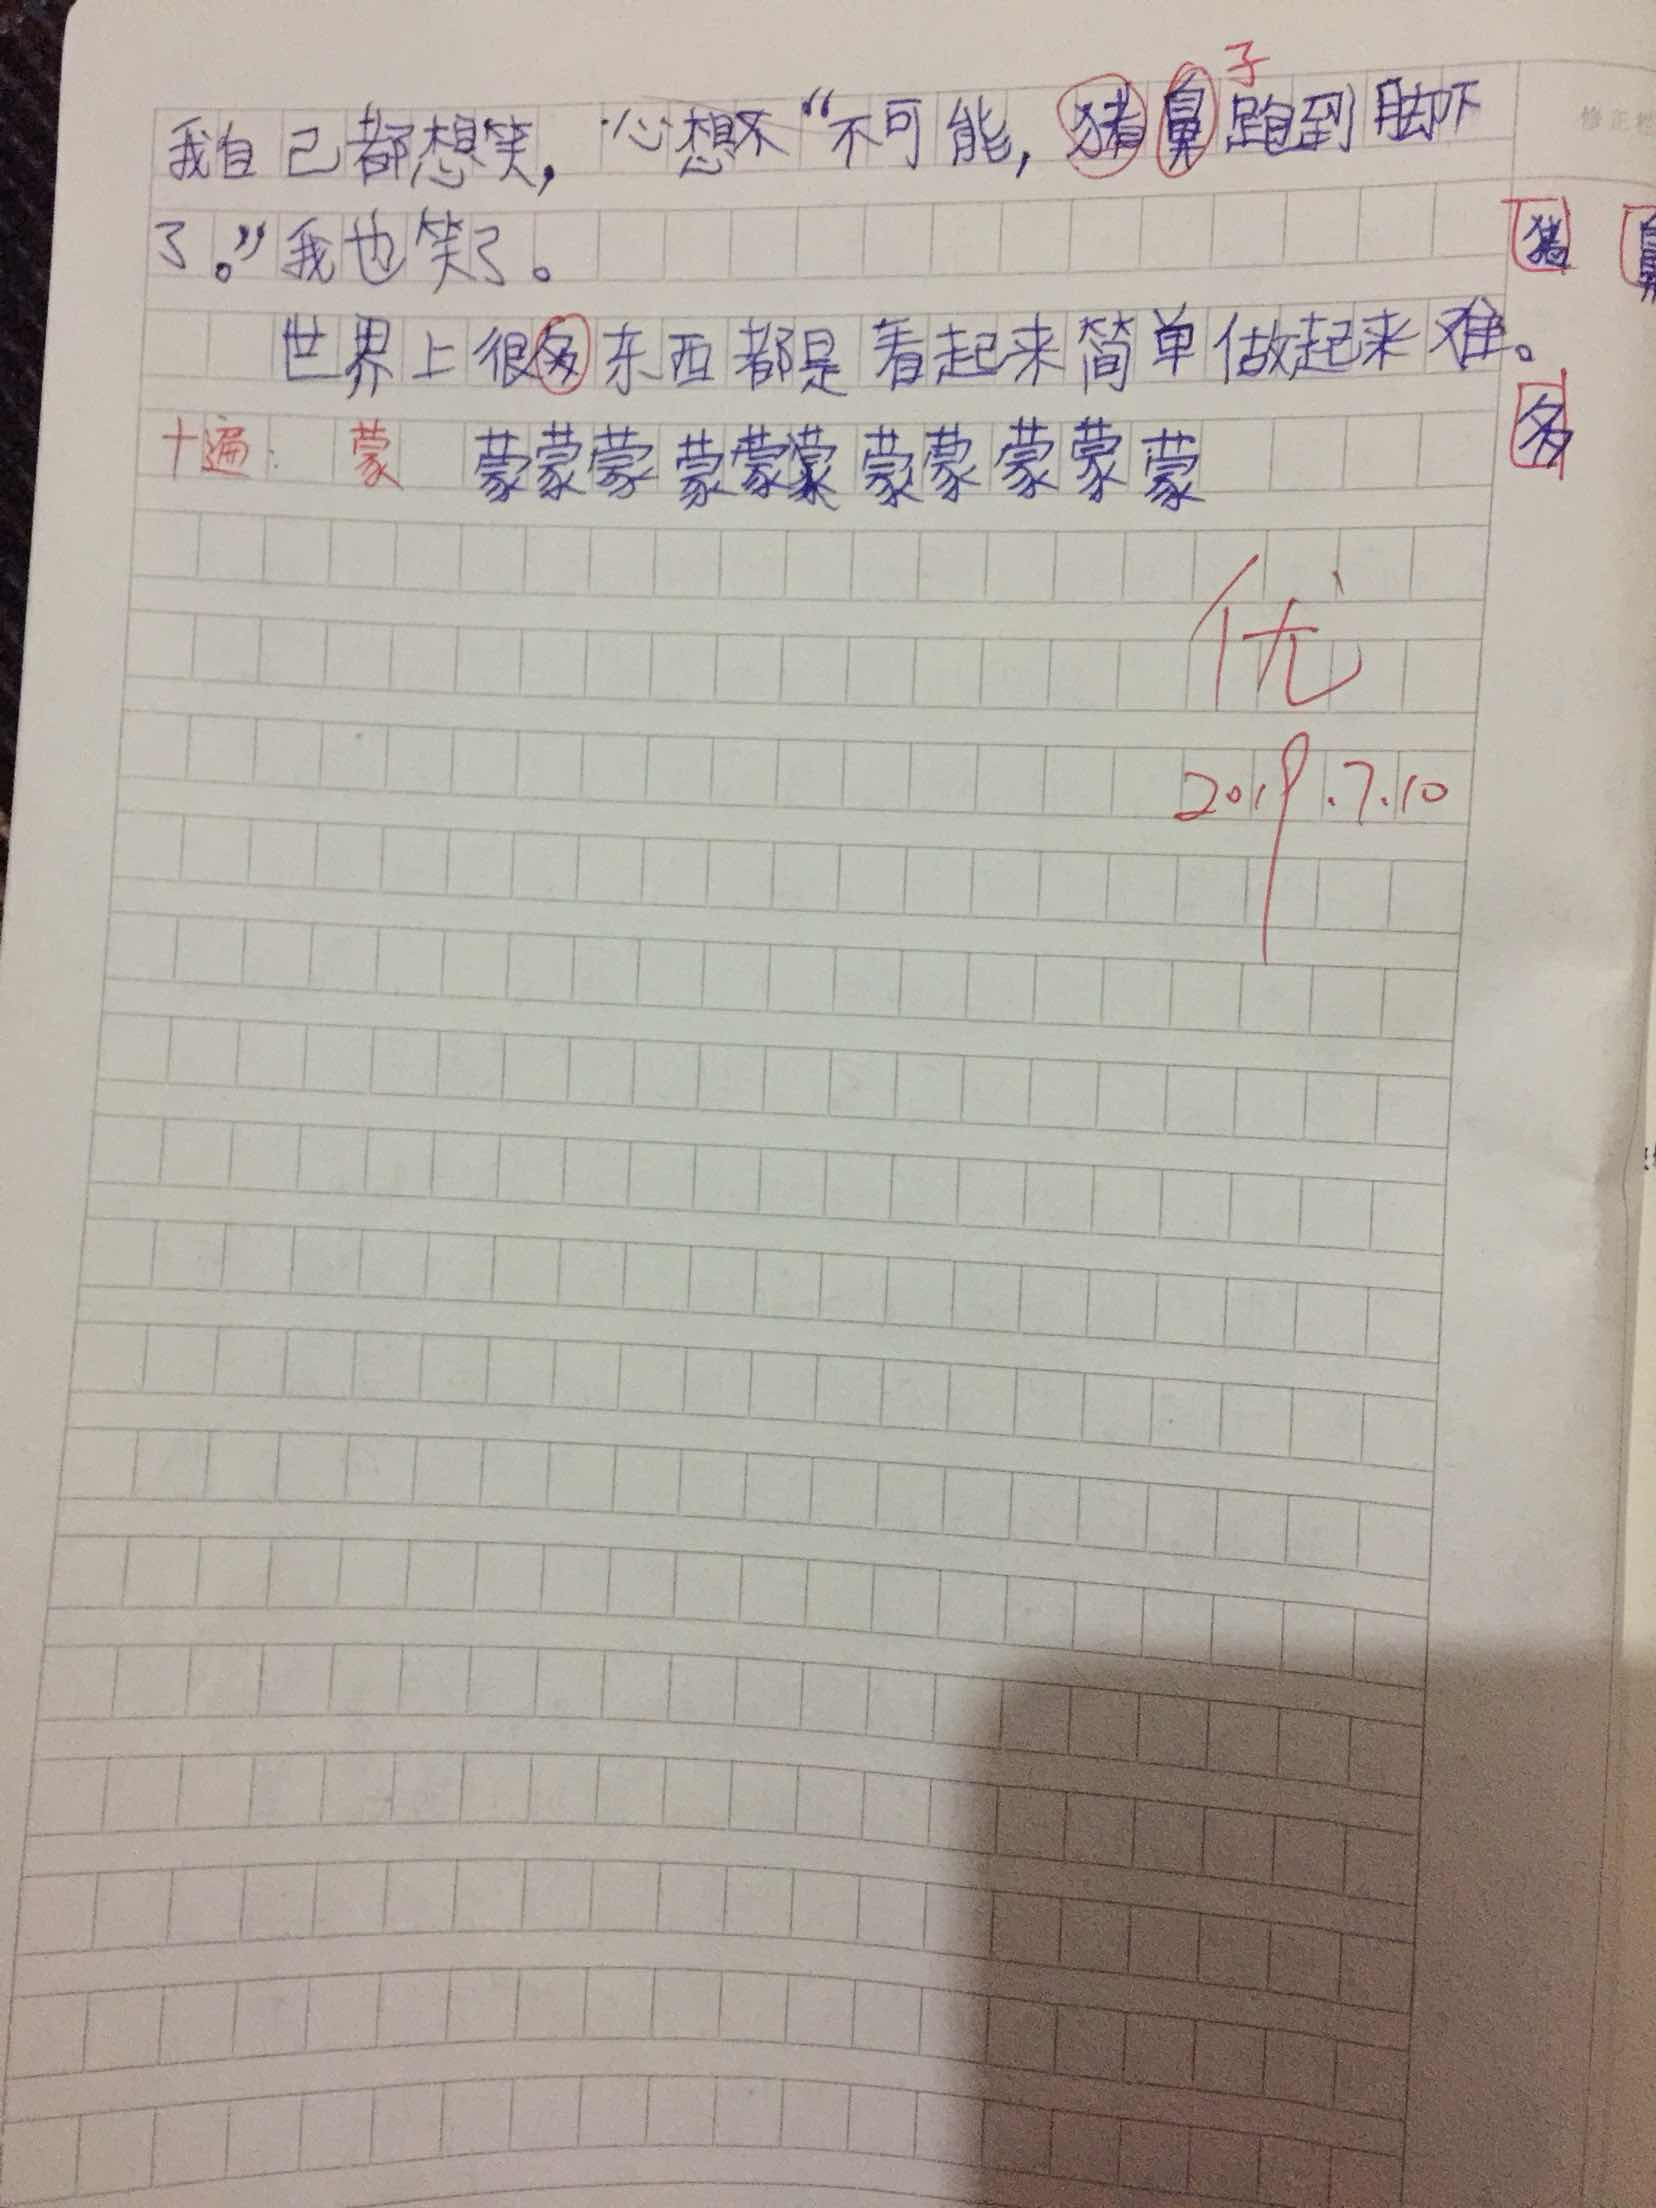 子
我自己都想笑，心想不“不可能，猪鼻跑到脚下
修正栏
了。”我也笑了。
猪 鼻
世界上很多东西都是看起来简单做起来难。
多
十遍：蒙 蒙蒙蒙蒙蒙蒙蒙蒙蒙蒙蒙
优
2019.7.10